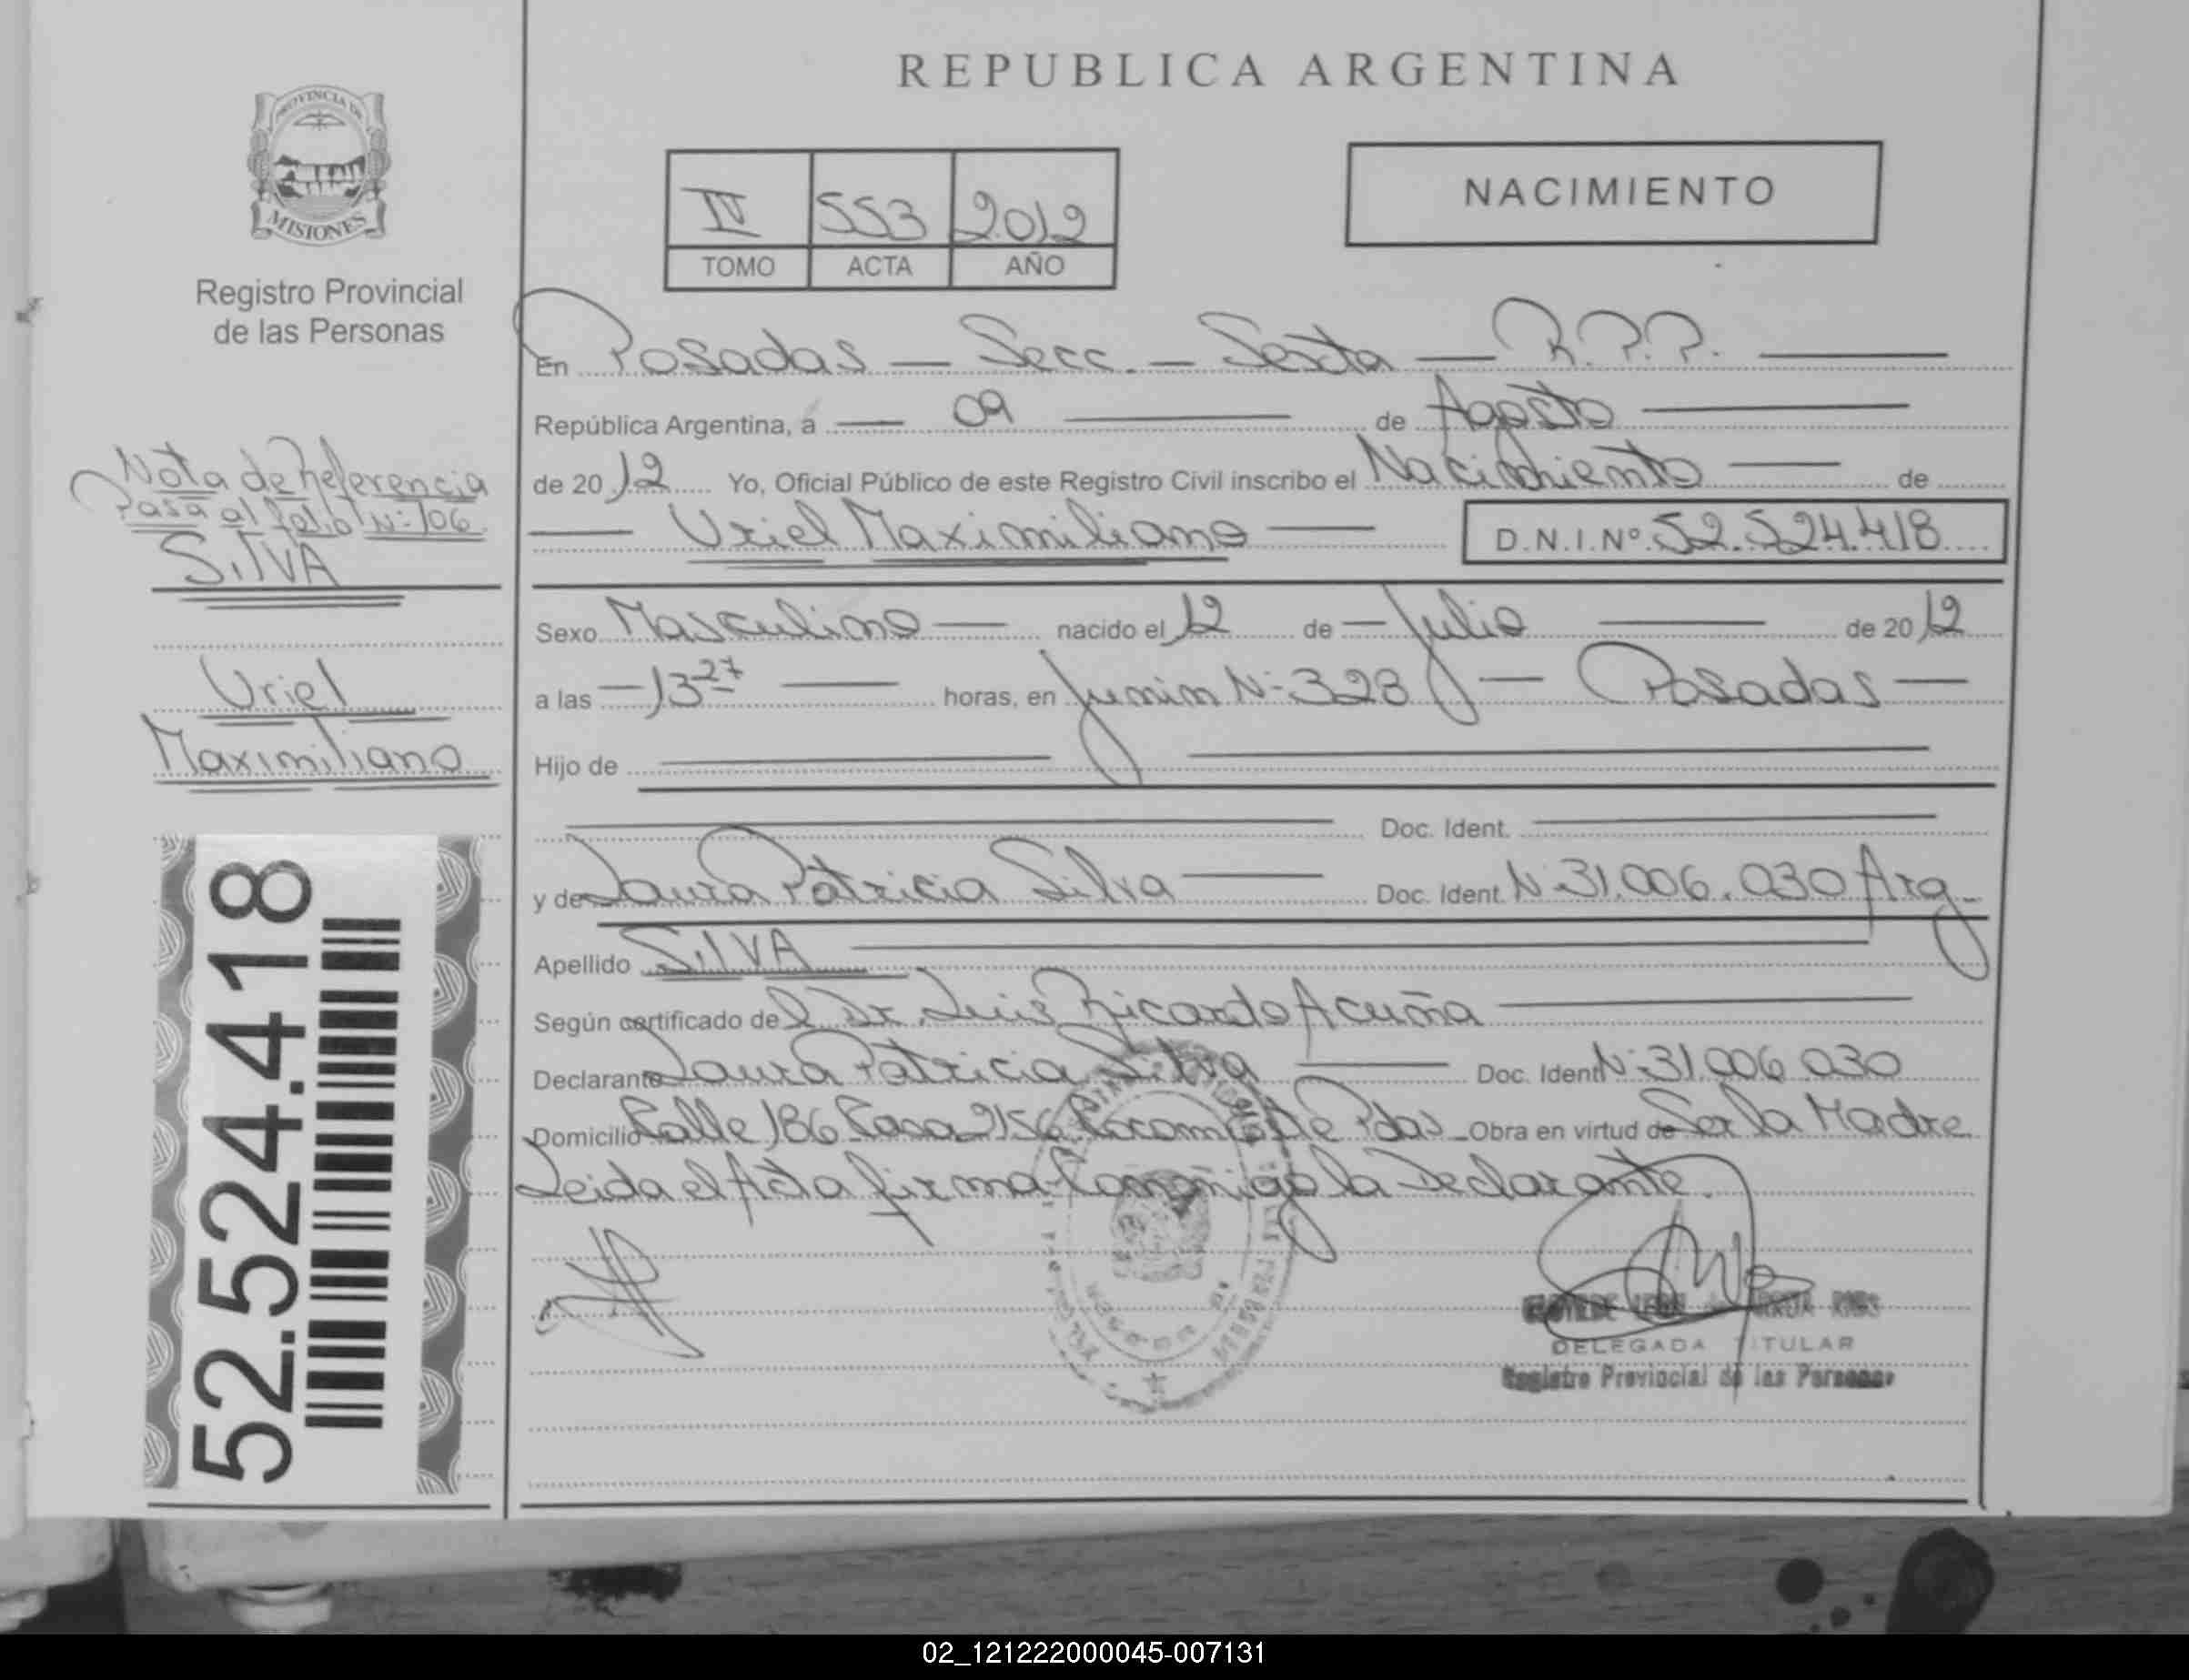 REPUBLICA ARGENTINA
PROVINCIA DE
MISIONES
Registro Provincial
de las Personas
IV 553 2012
TOMO ACTA AÑO
NACIMIENTO
En Posadas — Secc. — Sexta — R.P.P. —
República Argentina, a — 09 — de Agosto —
de 2012 Yo, Oficial Público de este Registro Civil inscribo el Nacimiento — de
— Uriel Maximiliano — D.N.I.Nº 52.524.418
Nota de Referencia
Pasa al folio Nº 106
SilVA
Uriel
Maximiliano
52.524.418
Sexo Masculino — nacido el 12 de — Julio — de 2012
a las — 13 27 — horas, en Junin Nº 328 — Posadas —
Hijo de
Doc. Ident.
y de Laura Patricia Silva — Doc. Ident. Nº 31.006.030 Arg.
Apellido SilVA
Según certificado del Dr. Luis Ricardo Acuña
Declarante Laura Patricia Silva — Doc. Ident Nº 31.006.030
Domicilio Calle 186 Casa 9156 Pdas Obra en virtud de Ser la Madre
Leida el Acta firma la Declarante.
DELEGADA TITULAR
Registro Provincial de las Personas
02_121222000045-007131